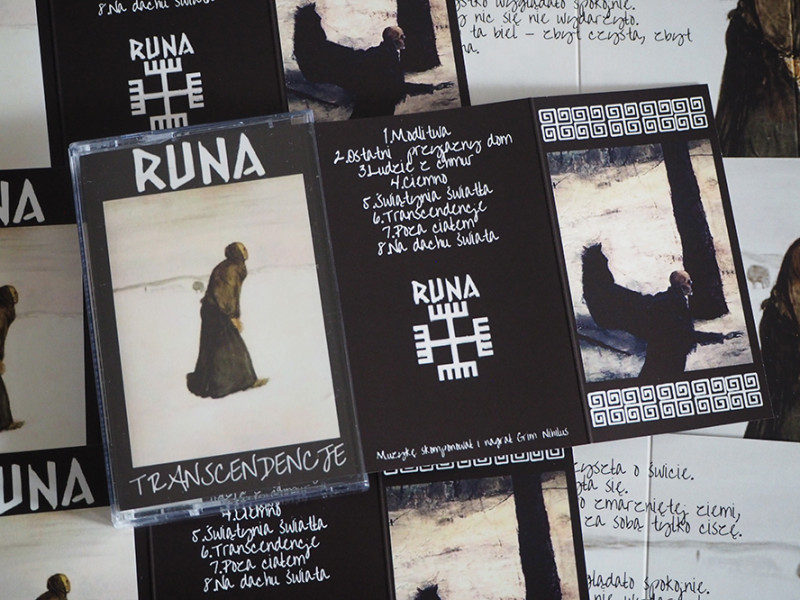 8.Na dachu świata
RUNA
wszystko wyglądało spokojnie.
nic się nie wydarzyło.
ta biel – zbyt czysta, zbyt
RUNA
TRANSCENDENCJE
1.Modlitwa
2.Ostatni przyjazny dom
3.Ludzie z chmur
4.Ciemno
5.Świątynia światła
6.Transcendencje
7.Poza ciałem
8.Na dachu świata
RUNA
Muzykę skomponował i nagrał Grim Nihilus
NA
UNA
4.Ciemno
5.Świątynia światła
6.Transcendencje
7.Poza ciałem
8.Na dachu świata
o świcie.
się.
zmarzniętej ziemi,
za sobą tylko ciszę.
spokojnie.